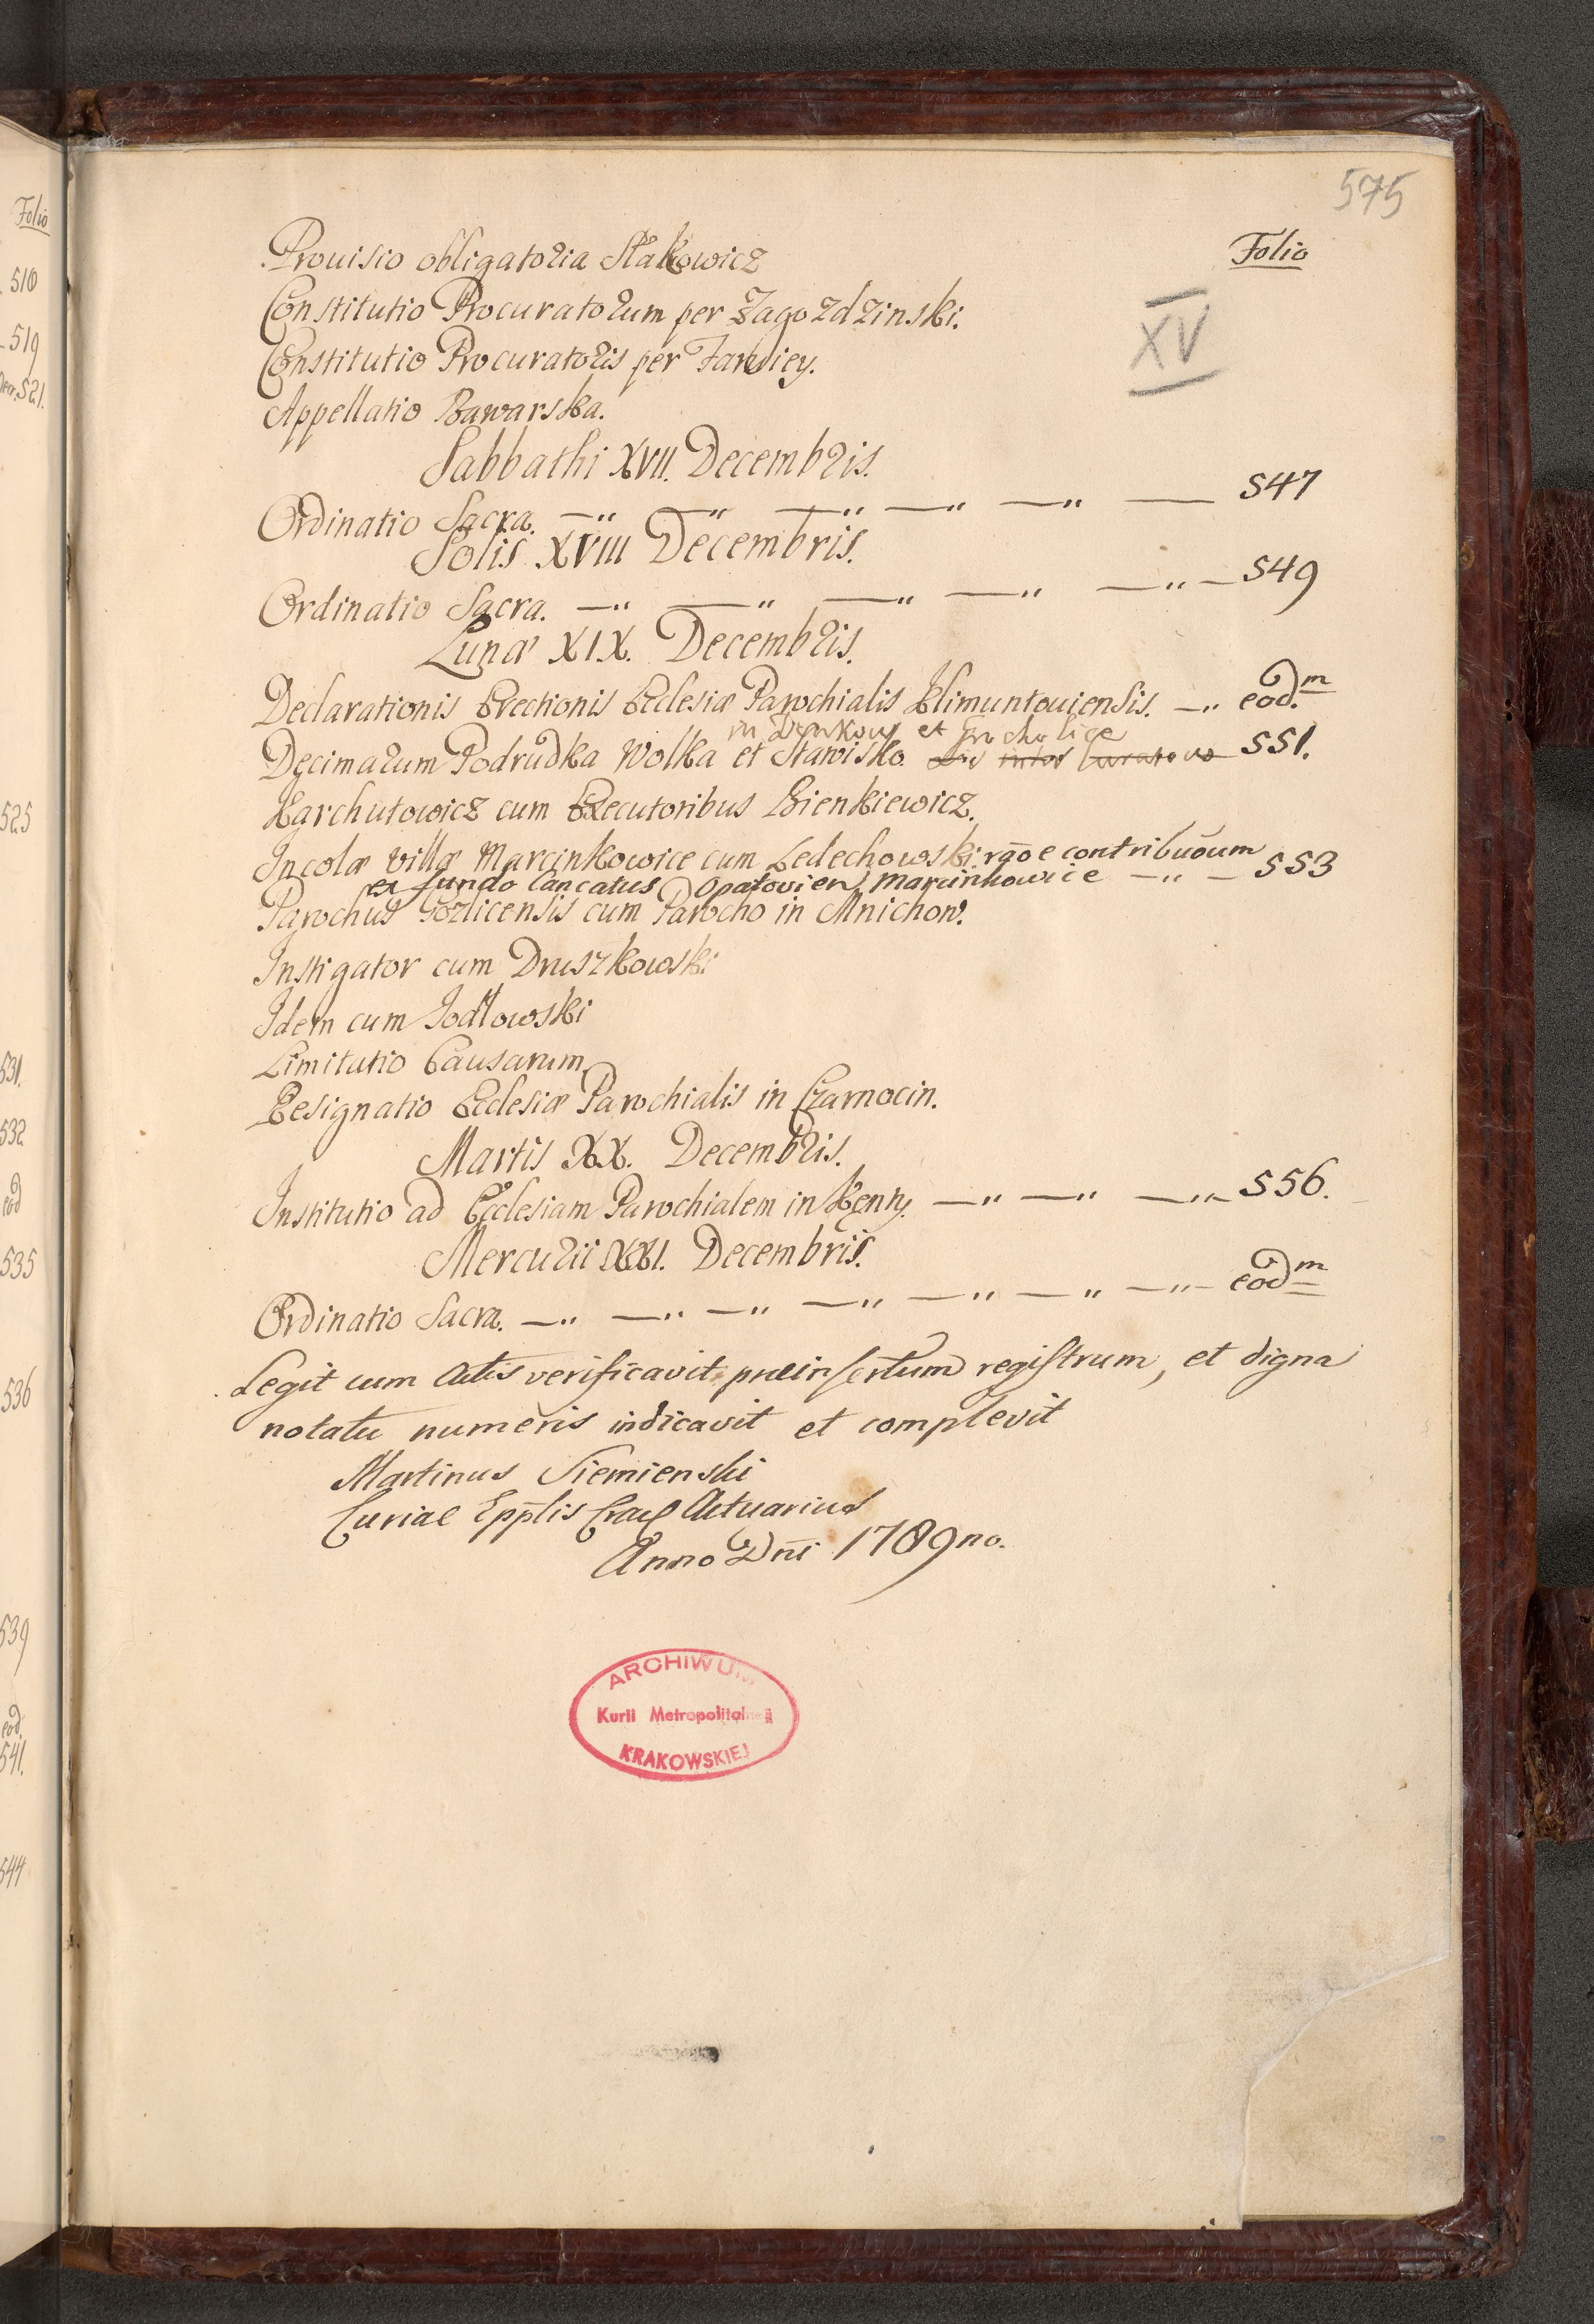 Folio
510
519
521.
525
531.
532
eod
535
536
539
eod.
541.
544
575
Folio
XV
Provisio obligatoria Stakowicz
Constitutio Procuratorum per Zagozdzinski.
Constitutio Procuratoris per
Appellatio Bawarska.
Sabbathi XVII. Decembris.
Ordinatio Sacra. —" —" —" —" —" — 547
Solis XVIII Decembris.
Ordinatio Sacra. —" —" —" —" —" — 549
Lunæ XIX. Decembris.
Declarationis Erectionis Ecclesiæ Parochialis Klimuntoviensis. —" eod.m
in Denkow et Grocholice
Decimarum Podrudka Wolka et Stawisko. Lis Curatovo 551.
Karchutowicz cum Executoribus Bienkiewicz.
Incolæ villæ Marcinkowice cum Ledechowski rāoe contribuōum
ex fundo Cancatus Opatovien Marcinkowice —" — 553
Parochus Gozlicensis cum Parocho in Mnichow.
Instigator cum Druszkowski
Idem cum Jodłowski
Limitatio Causarum.
Resignatio Ecclesiæ Parochialis in Czarnocin.
Martis XX. Decembris.
Institutio ad Ecclesiam Parochialem in Kenty. —" —" —" 556.
Mercurii XXI. Decembris.
Ordinatio Sacra. —" —" —" —" —" —" —" eodm
Legit cum Actis verificavit præinsertum registrum, et digna
notatu numeris indicavit et complevit
Martinus Siemienski
Curiae Epplis Crac Actuarius
Anno Dni 1789no.
ARCHIWUM
Kurii Metropolitalnej
KRAKOWSKIEJ